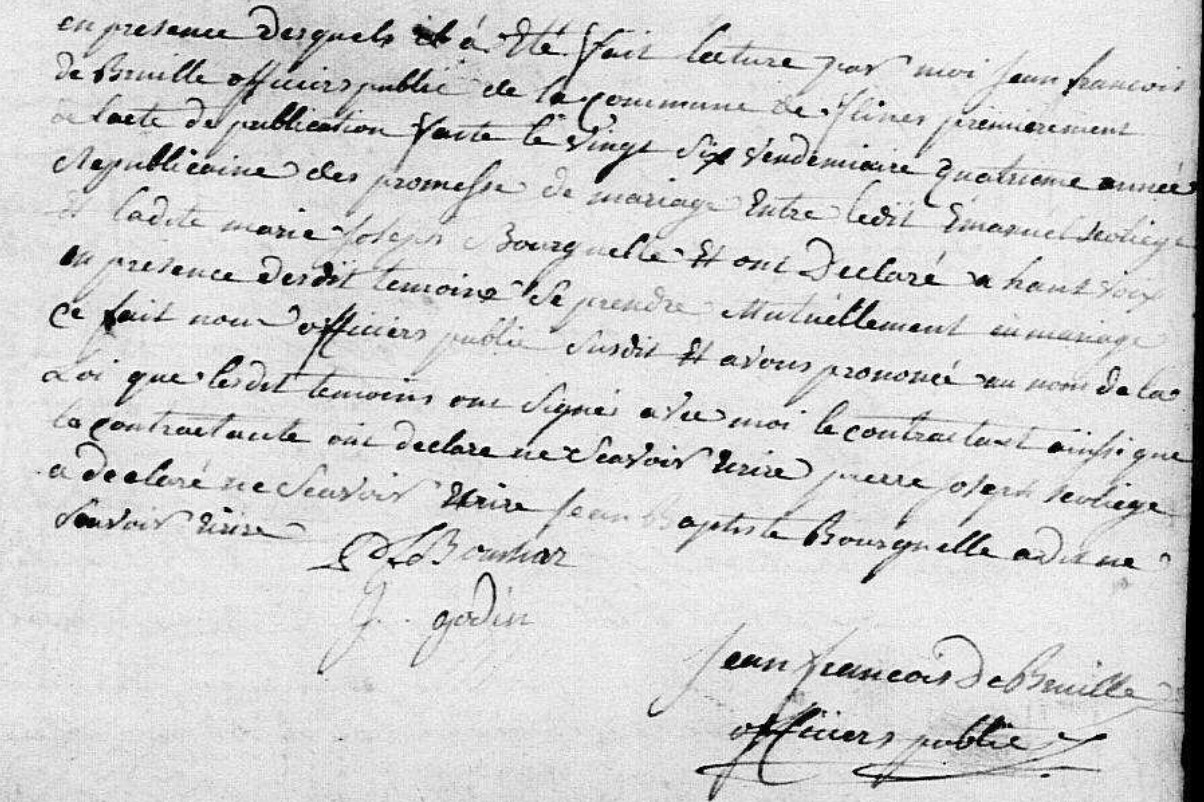 en presence Desquels il à Eté fait lecture par moi Jean francois
de Bruille officiers publié de la commune de flines premierement
de lacte de publication faite le vingt six vendemiaire quatrieme année
Republicaine des promesse de mariage Entre ledit Emanuel
Et ladite marie Joseph Bourquelle Et ont Declaré a haut voix
en presence desdit temoins Se prendre Mutuellement en mariage
Ce fait nous officiers publie Susdit Et avous prononcé au nom de la
Loi que lesdit temoins ont signés avec moi le contractant ainsi que
la contractante ont declare ne Scavoir Ecrire pierre Joseph
a declaré ne Scavoir Ecrire Jean Baptiste Bourquelle a dit ne
Scavoir Ecrire
J. godin
Jean francois De Bruille
officiers publie